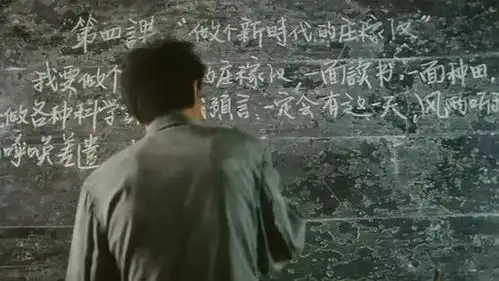 第四課 “做个新時代的庄稼汉”
我要做个的庄稼汉，一面读书，一面种田
做各种科学預言、一定会有这一天，风雨听
呼唤差遣